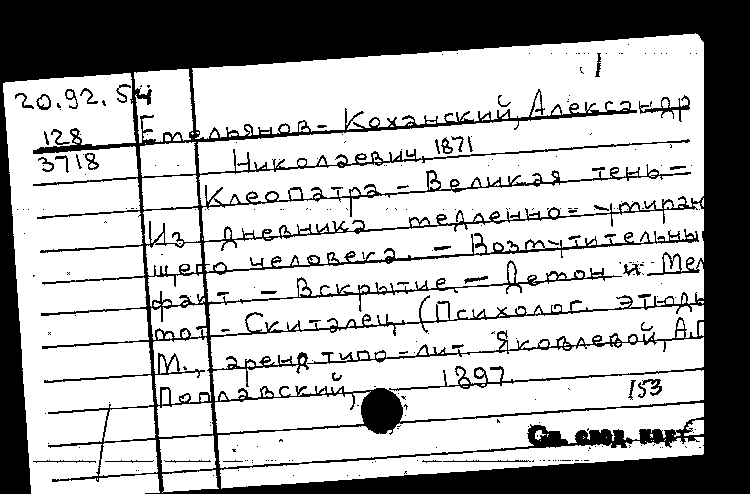 1
20.92.54
128
3718
Емельянов-Коханский, Александр
Николаевич, 1871
Клеопатра. - Великая тень. -
Из дневника медленно-умираю
щего человека. - Возмутительны
факт. - Вскрытие. - Демон и Мел
мот-Скиталец. (Психолог. этюды
М., аренд. типо-лит. Яковлевой, А.П.
Поплавский, 1897.
153
См. след. карт.